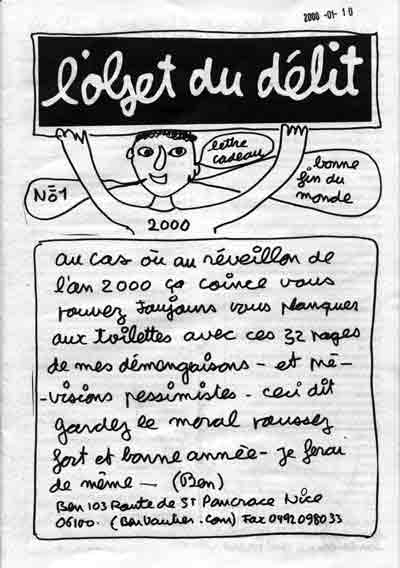 2000 -01- 10
l'objet du délit
lettre
cadeau
bonne
fin du
monde
N°1
2000
au cas où au réveillon de
l'an 2000 ça coince vous
pouvez toujours vous planquer
aux toilettes avec ces 32 pages
de mes démengaisons - et pré-
-visions pessimistes - ceci dit
gardez le moral poussez
fort et bonne année - je ferai
de même - (Ben)
Ben 103 Route de St Pancrace Nice
06100. (BenVautier.com) Fax 0492098033